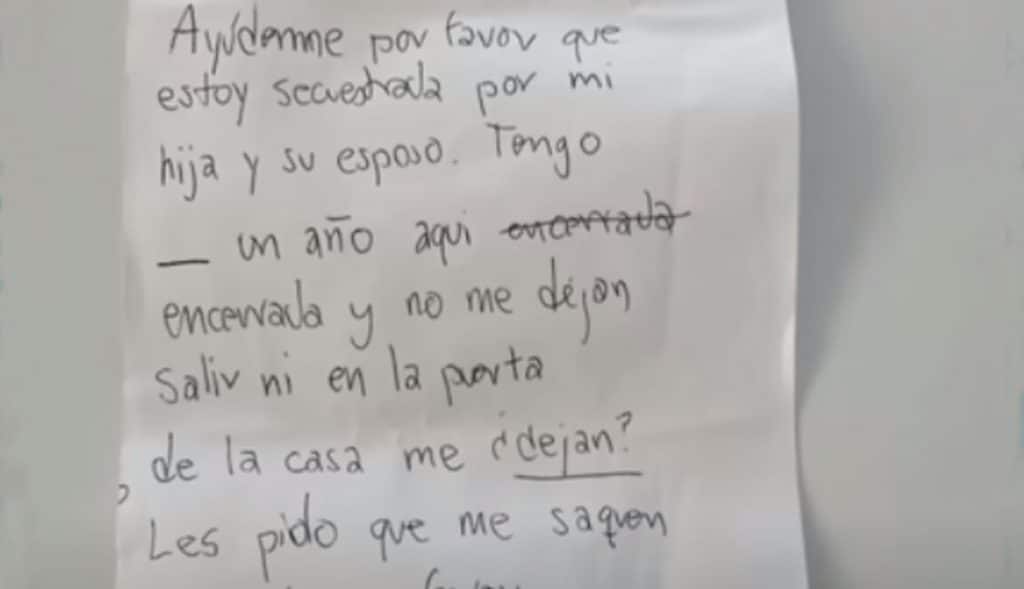 Ayúdenme por favor que
estoy secuestrada por mi
hija y su esposo. Tengo
__ un año aqui encerrada
encerrada y no me dejan
salir ni en la puerta
, de la casa me ¿dejan?
Les pido que me saquen